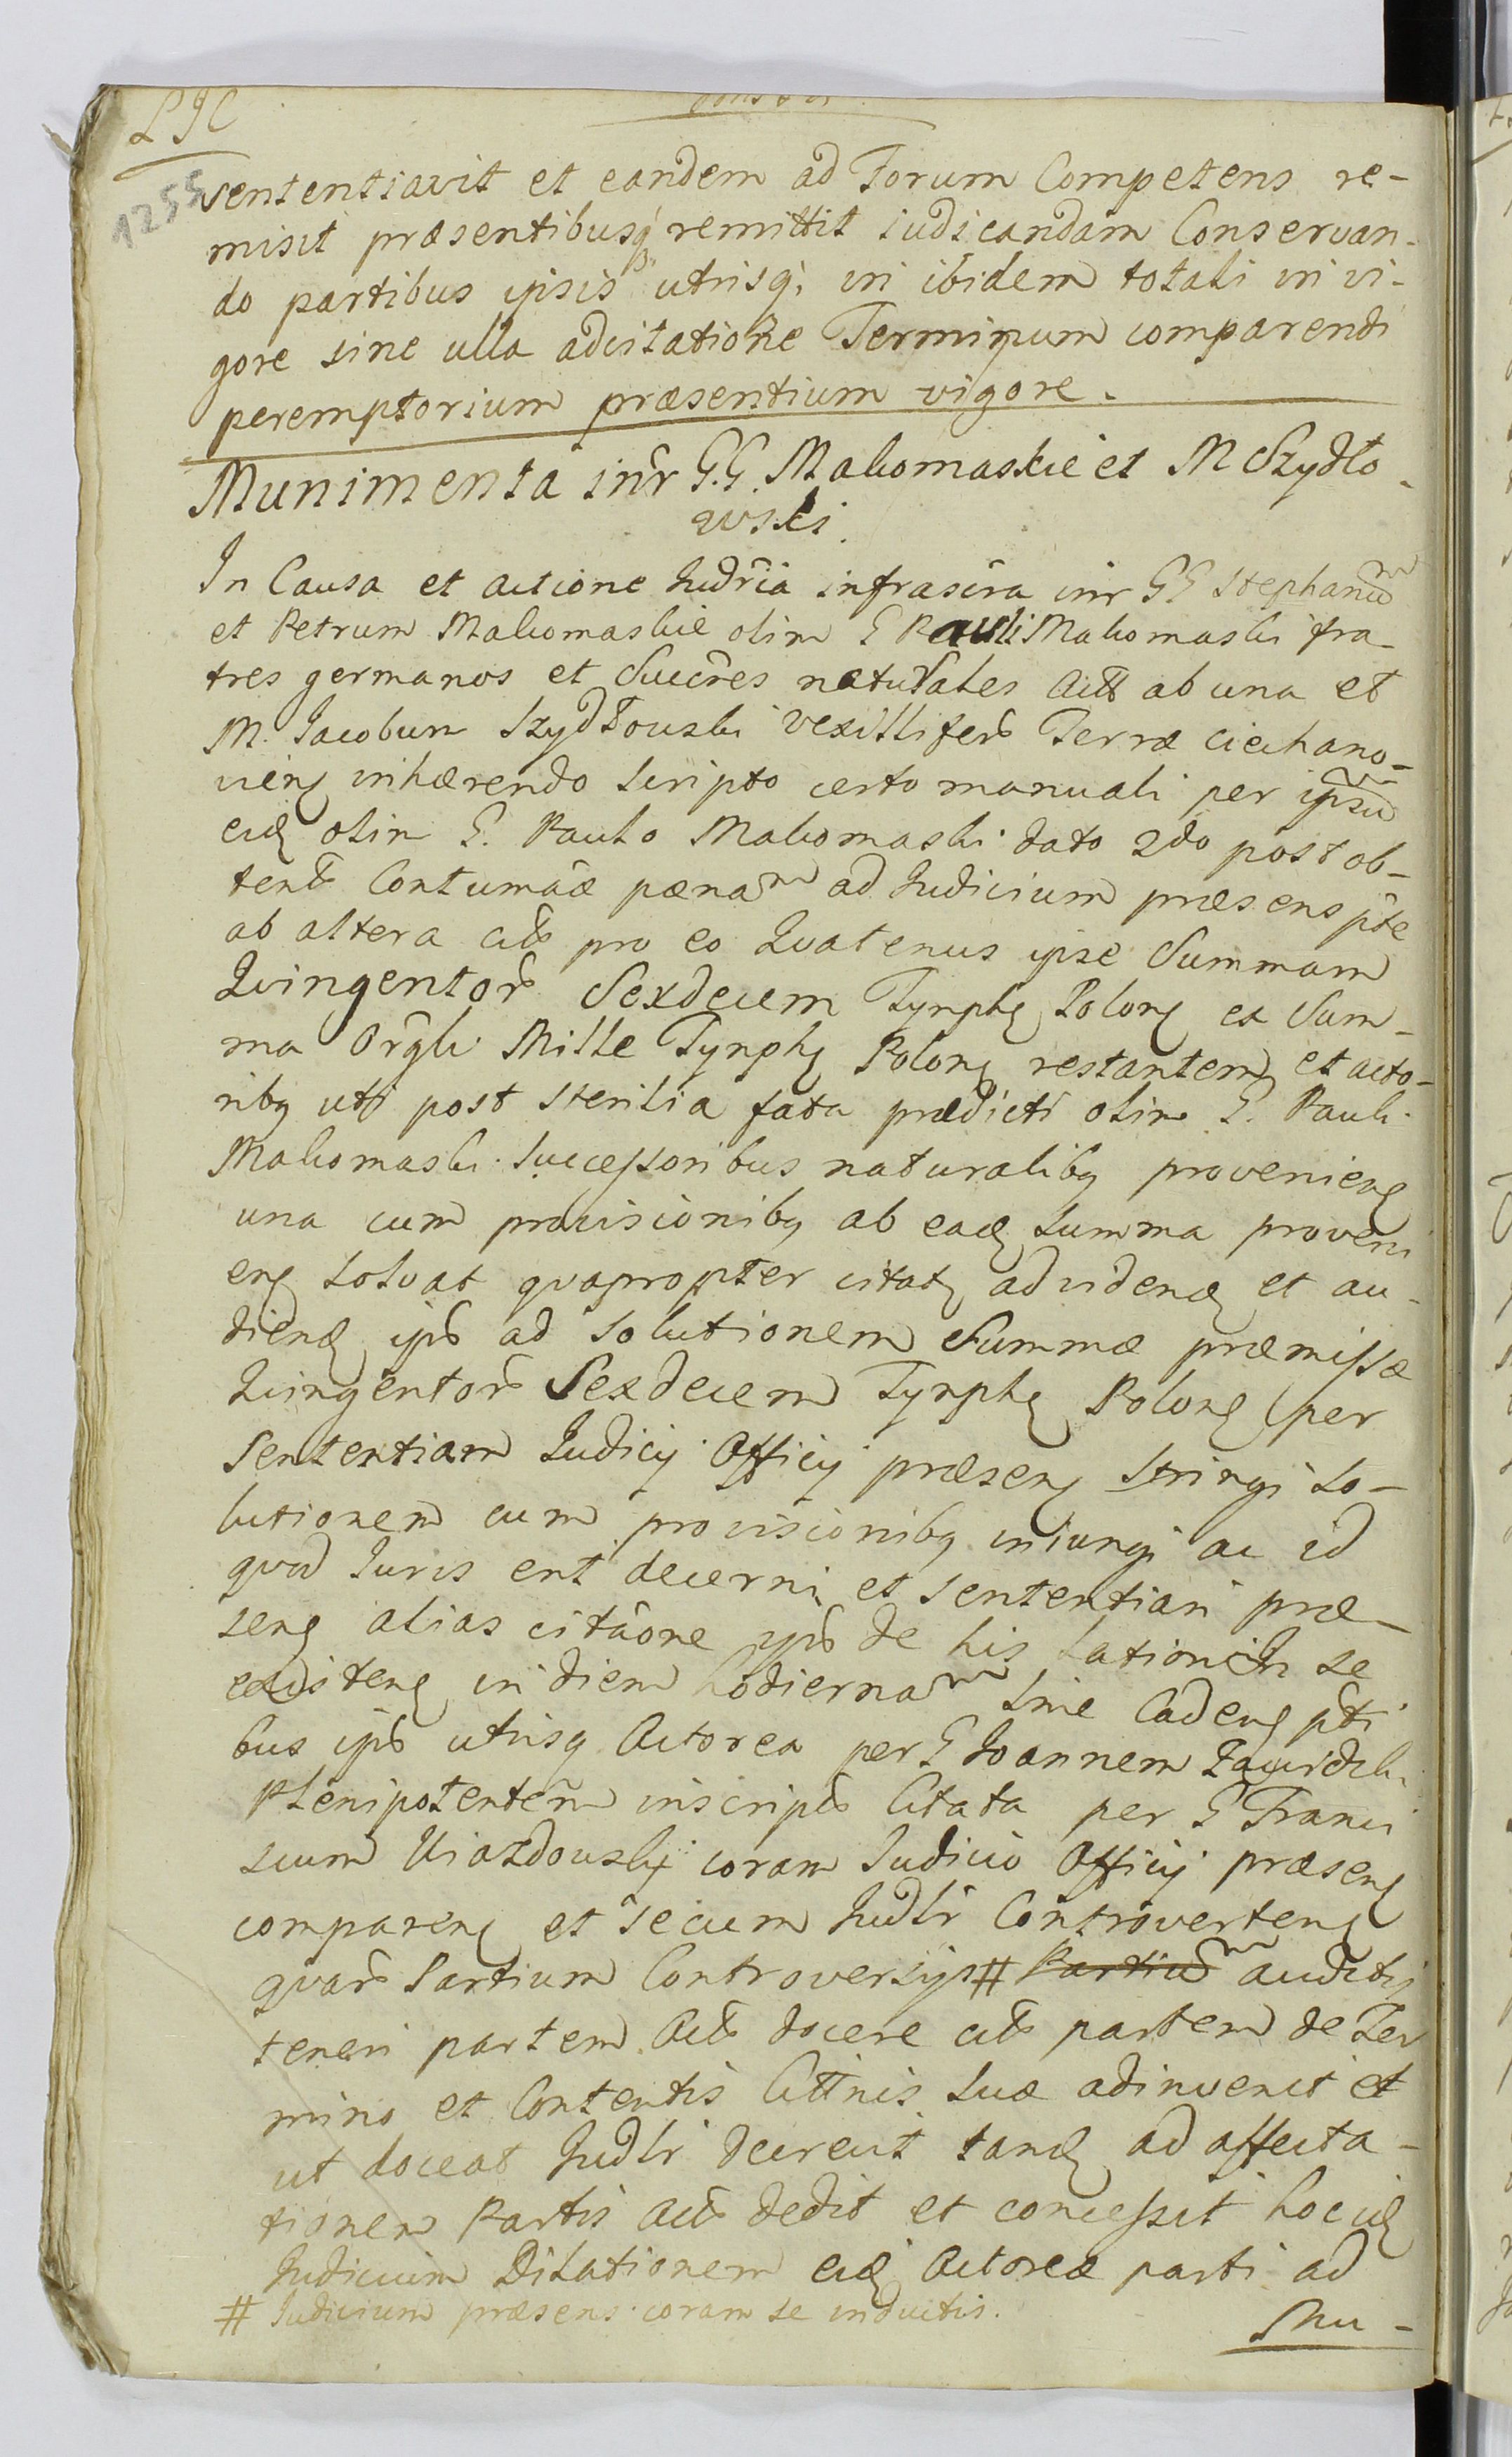 1255
sententiavit et eandem ad Forum Competens re-
misit præsentibusq remittit iudicandam Conservan-
do partibus ipsis utrisq; in ibidem totali in vi-
gore sine ulla adcitatione Terminum comparendi
peremptorium præsentium vigore.
Munimenta inr G.G. Makomaskie et M Szydło
wski
In Causa et actione Judria infrascra inr GG Stephanu
et Petrum Makomaskie olim G Pauli Makomaski fra-
tres germanos et Succres naturales Actt ab una et
M. Jacobum Szydłowski Vexilliferu Terræ Ciechano-
vien inhærendo scripto certo manuali per ipsu
eid olim G. Paulo Makomaski dato 2do post ob-
tent Contumaæ pænam ad Judicium præsens pte
ab altera cit pro eo Qvatenus ipse Summam
Qvingentor Sexdecem Tynph Polon ex Sum-
ma Orgli Mille Tynph Polon restantem et acto-
ribq uti post sterilia fata prædicti olim G. Pauli
Makomaski Successoribus naturalibq provenien
una cum provisionibq ab ead summa proveni
en solvat qvapropter citat ad vidend et au-
diend ips ad solutionem Summæ præmissæ
Qvingentor Sexdecem Tynph Polon per
Sententiam Judicij Officij præsen stringi so-
lutionem cum provisionibq iniungi ac id
qvod Juris erit decerni et sententiari præ-
sen alias citaone ips de his lationih se
existen in diem hodiernam sive Caden pti
bus ips utrisq Actorea per G Joannem
Plenipotentem inscript Citata per G Franci
scum Uiazdowski coram Judicio Officij præsen
comparen et secum Judlr Controverten
qvar Partium Controversijs # Partiu auditis
teneri partem Act docere cit partem de Ter
mino et Contentis Cittnis suæ adinvenit et
ut doceat Judlr decrevit tand ad affecta-
tionem Partis Act dedit et concessit hocid
Judicium Dilationem eid Actoreæ parti ad
# Judicium præsens coram se inductis.
Mu-